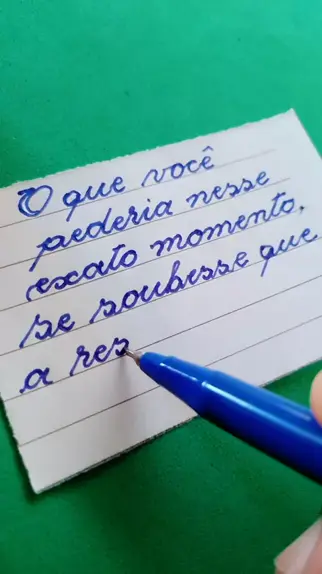 O que você
pederia nesse
exato momento,
se soubesse que
a res